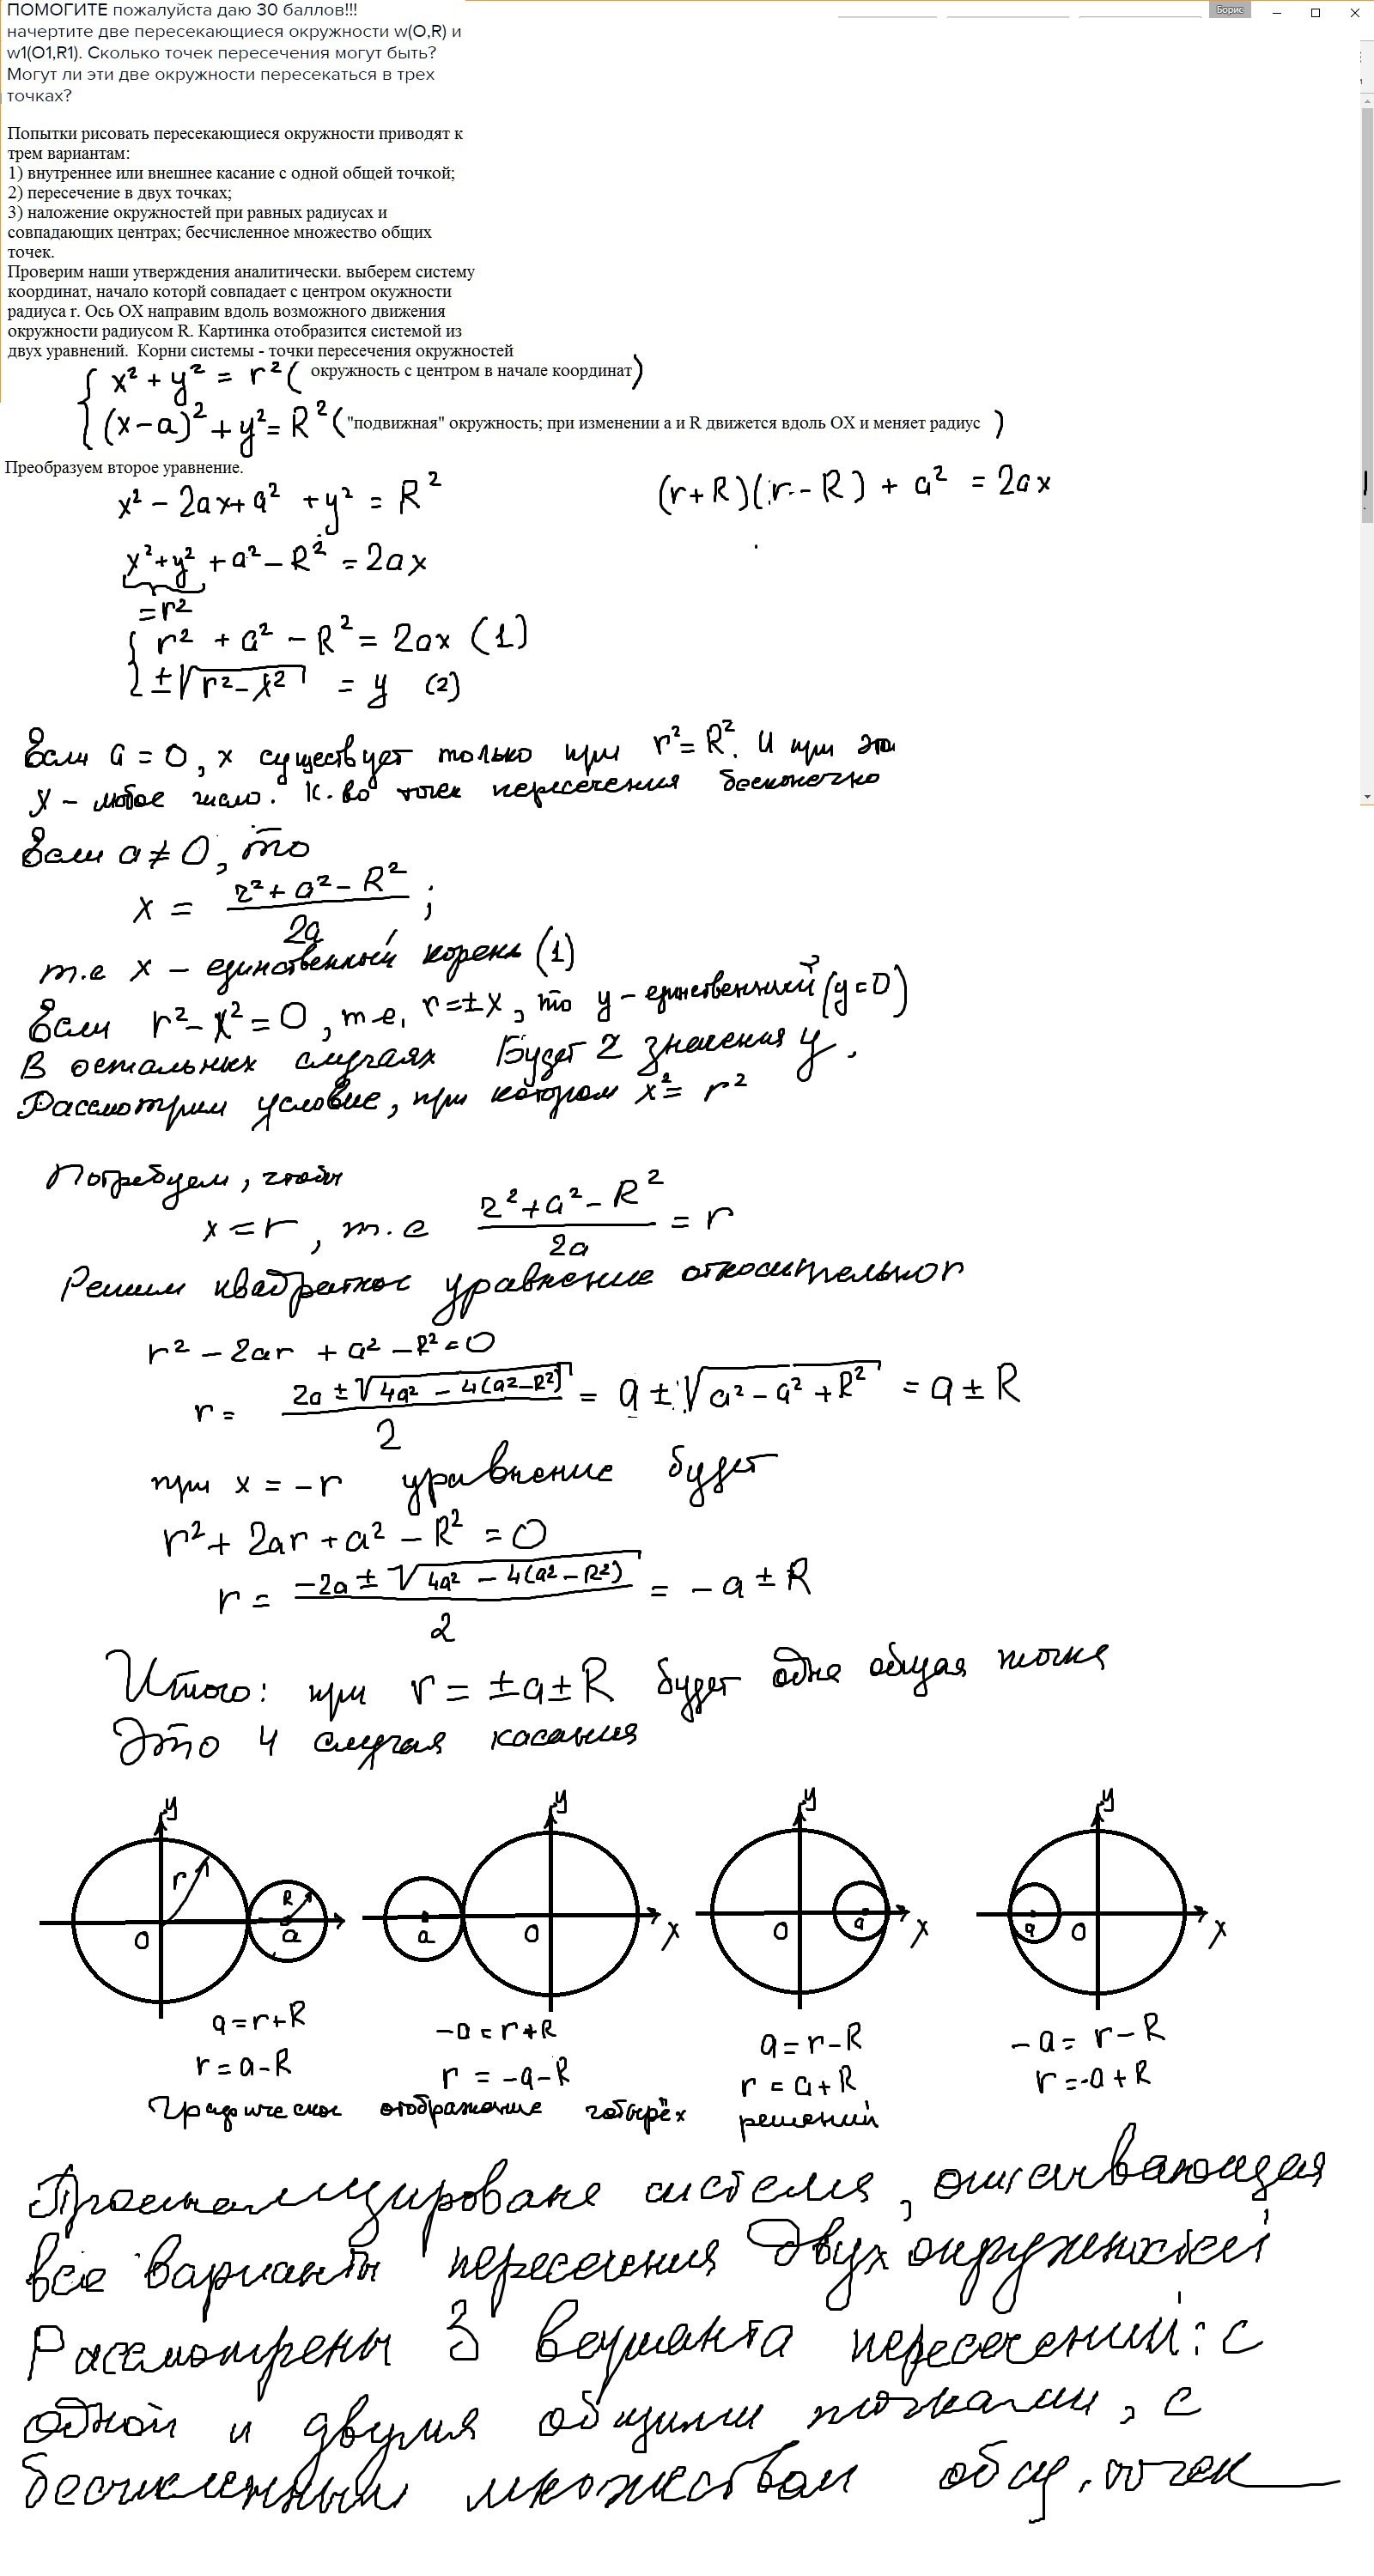 Борис
ПОМОГИТЕ пожалуйста даю 30 баллов!!!
начертите две пересекающиеся окружности w(O,R) и
w1(O1,R1). Сколько точек пересечения могут быть?
Могут ли эти две окружности пересекаться в трех
точках?
Попытки рисовать пересекающиеся окружности приводят к
трем вариантам:
1) внутреннее или внешнее касание с одной общей точкой;
2) пересечение в двух точках;
3) наложение окружностей при равных радиусах и
совпадающих центрах; бесчисленное множество общих
точек.
Проверим наши утверждения аналитически. выберем систему
координат, начало которй совпадает с центром окужности
радиуса r. Ось OX направим вдоль возможного движения
окружности радиусом R. Картинка отобразится системой из
двух уравнений. Корни системы - точки пересечения окружностей
x² + y² = r² ( окружность с центром в начале координат )
(x-a)² + y² = R² ( "подвижная" окружность; при изменении a и R движется вдоль OX и меняет радиус )
Преобразуем второе уравнение.
x² - 2ax + a² + y² = R²
(r+R)(r-R) + a² = 2ax
x²+y² + a² - R² = 2ax
= r²
r² + a² - R² = 2ax (1)
±√(r²-x²) = y (2)
Если a = 0, x существует только при r² = R². И при этом
y - любое число. К-во точек пересечения бесконечно
Если a ≠ 0, то
x = (r² + a² - R²)/2a ;
т.е x - единственный корень (1)
Если r² - x² = 0, т-е, r = ±x, то y - единственный (y=0)
В остальных случаях будет 2 значения y.
Рассмотрим условие, при котором x² = r²
Потребуем, чтобы
x = r, т.е (r² + a² - R²)/2a = r
Решим квадратное уравнение относительно r
r² - 2ar + a² - R² = 0
r = (2a ± √(4a² - 4(a²-R²)))/2 = a ± √(a² - a² + R²) = a ± R
при x = -r уравнение будет
r² + 2ar + a² - R² = 0
r = (-2a ± √(4a² - 4(a²-R²)))/2 = -a ± R
Итого: при r = ±a±R будет одна общая точка
Это 4 случая касания
y
r
R
O
a
y
a
O
x
y
O
a
x
y
a
O
x
a = r+R
-a = r+R
a = r-R
-a = r-R
r = a-R
r = -a-R
r = a+R
r = -a+R
Графическое отображение четырёх решений
Проанализирована система, описывающая
все варианты пересечения двух окружностей
Рассмотрены 3 варианта пересечений: с
одной и двумя общими точками, с
бесчисленным множеством общ. точек